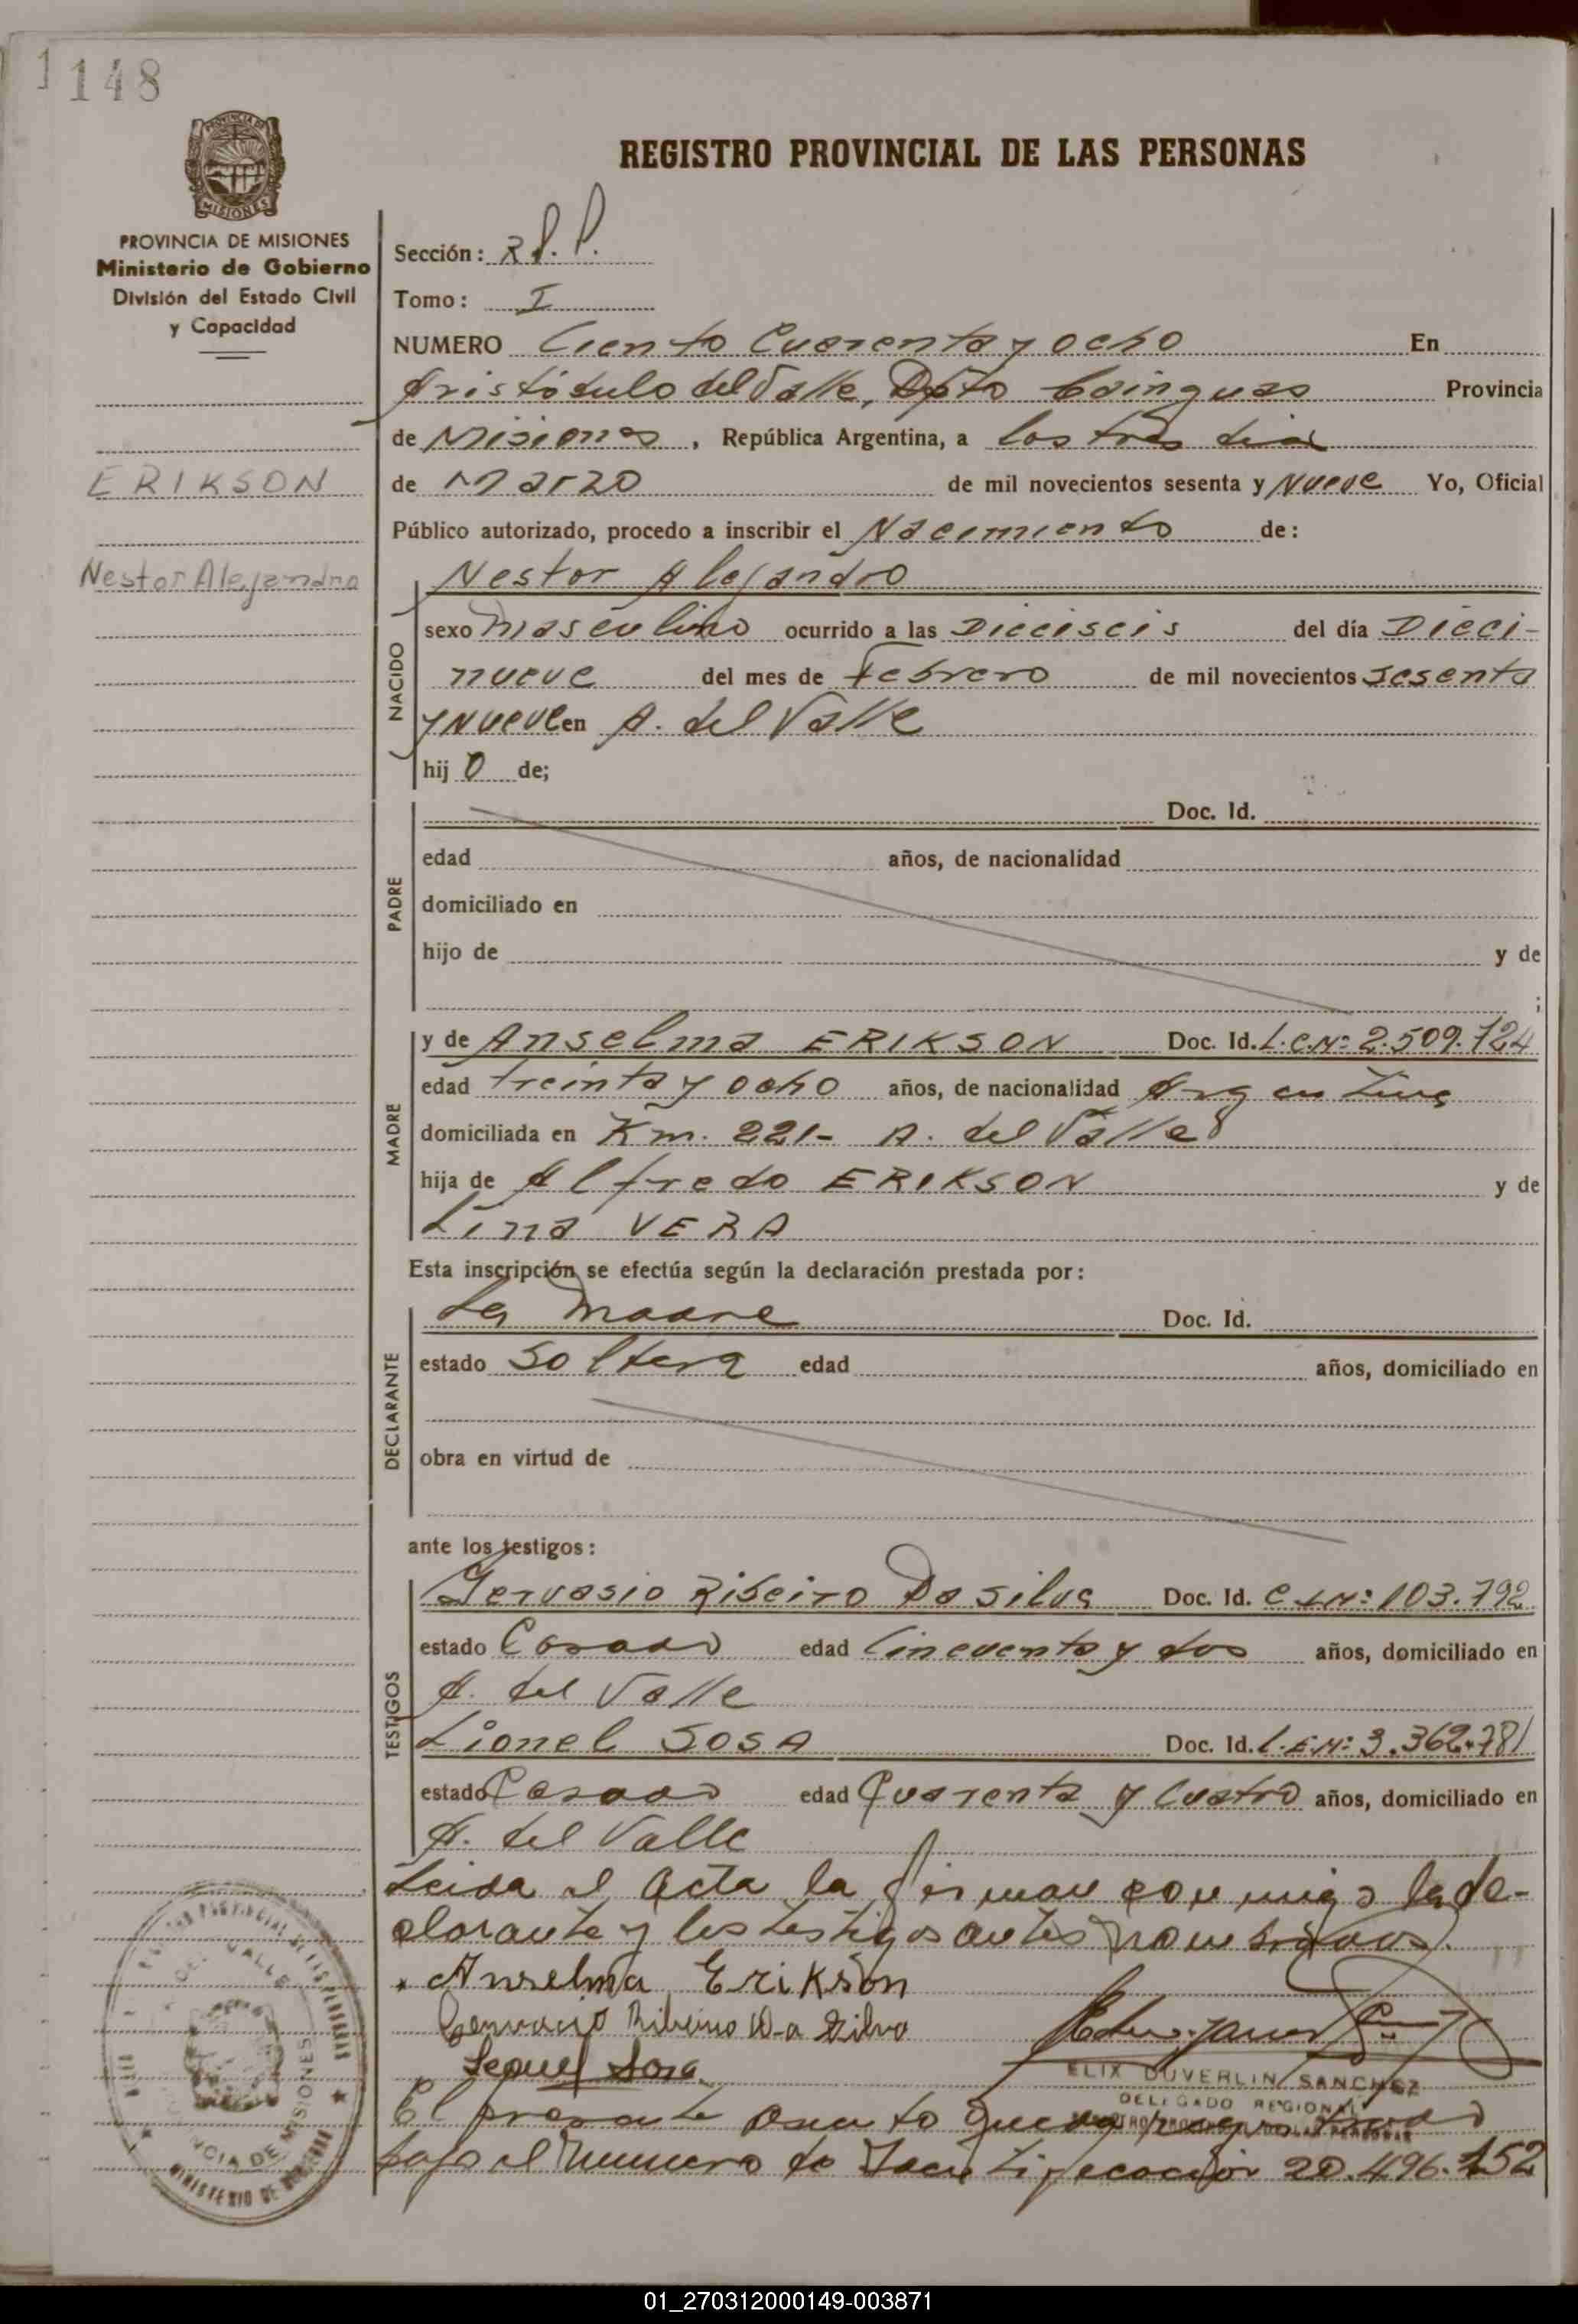 1148
REGISTRO PROVINCIAL DE LAS PERSONAS
PROVINCIA DE MISIONES
PROVINCIA DE MISIONES
Ministerio de Gobierno
División del Estado Civil
y Capacidad
ERIKSON
Nestor Alejandro
Sección: R.P.P.
Tomo: I
NUMERO Ciento Cuarenta y ocho En
Aristóbulo del Valle, Dpto Cainguas Provincia
de Misiones, República Argentina, a los tres dias
de Marzo de mil novecientos sesenta y Nueve Yo, Oficial
Público autorizado, procedo a inscribir el Nacimiento de:
Nestor Alejandro
NACIDO
sexo masculino ocurrido a las Dieciseis del día Dieci-
nueve del mes de Febrero de mil novecientos sesenta
y Nueve en A. del Valle
hij o de;
PADRE
Doc. Id.
edad años, de nacionalidad
domiciliado en
hijo de y de
;
MADRE
y de Anselma ERIKSON Doc. Id. L.C.Nº 2.509.724
edad treinta y ocho años, de nacionalidad Argentina
domiciliada en Km. 221- A. del Valle
hija de Alfredo ERIKSON y de
Lina VERA
Esta inscripción se efectúa según la declaración prestada por:
DECLARANTE
La madre Doc. Id.
estado Soltera edad años, domiciliado en
obra en virtud de
ante los testigos:
TESTIGOS
Gervasio Ribeiro Da Silva Doc. Id. C.I.Nº 103.792
estado Casado edad Cincuenta y dos años, domiciliado en
A. del Valle
Lionel SOSA Doc. Id. L.E.Nº 3.362.781
estado Casado edad Cuarenta y Cuatro años, domiciliado en
A. del Valle
Leida el Acta la firman conmigo la de-
clarante y los testigos antes nombrados.
Anselma Erikson
Gervacio Ribeiro Da Silva
Leonel Sosa
ELIX DUVERLIN SANCHEZ
DELEGADO REGIONAL
REGISTRO PROVINCIAL DE LAS PERSONAS
El presente asento queda registrado
bajo el Numero de Identificacion 20.496.152
DEL VALLE
MINISTERIO DE
01_270312000149-003871